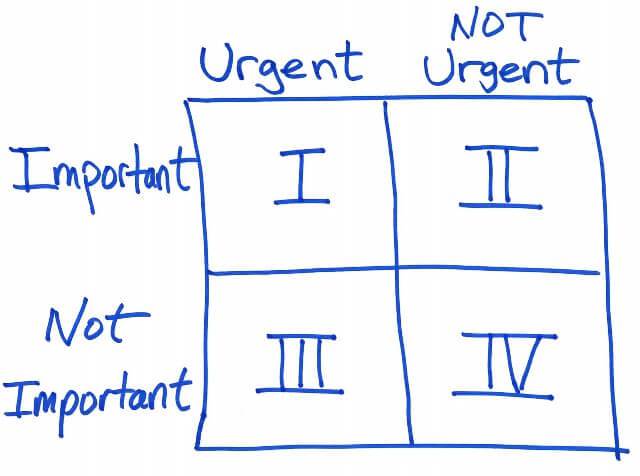 Urgent
NOT
Urgent
Important
I
II
Not
Important
III
IV